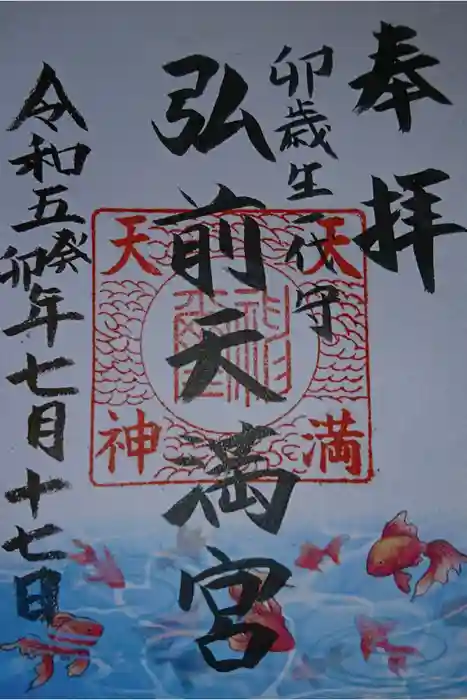 奉拝
卯歳生一代守
弘前天満宮
令和五癸卯年七月十七日
天満
天神